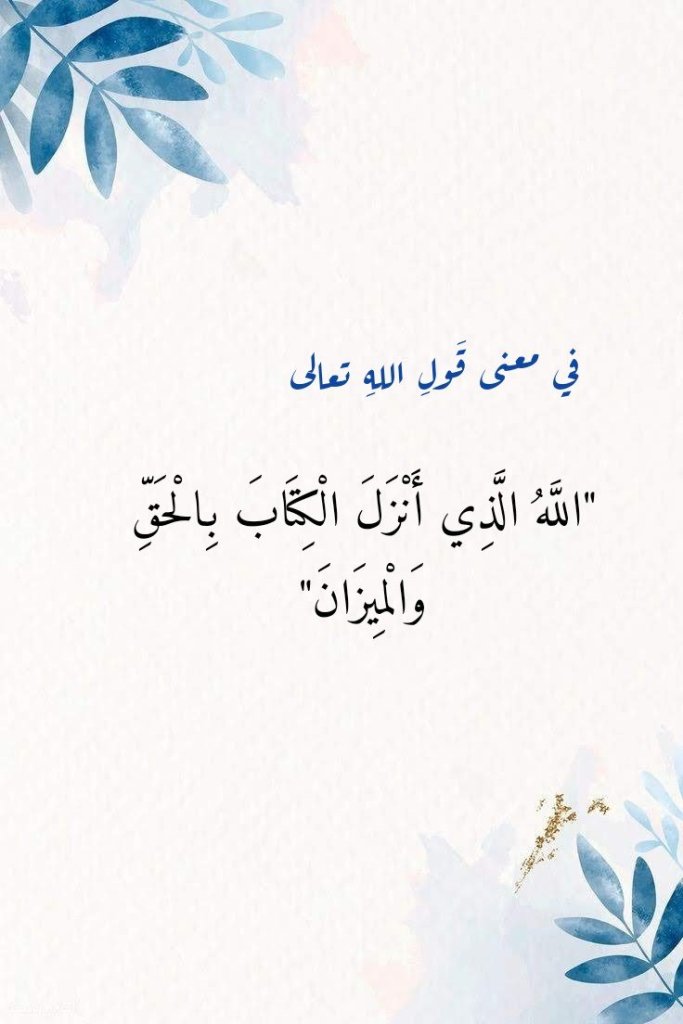 في معنى قَولِ اللهِ تعالى
"اللَّهُ الَّذِي أَنْزَلَ الْكِتَابَ بِالْحَقِّ
وَالْمِيزَانَ"